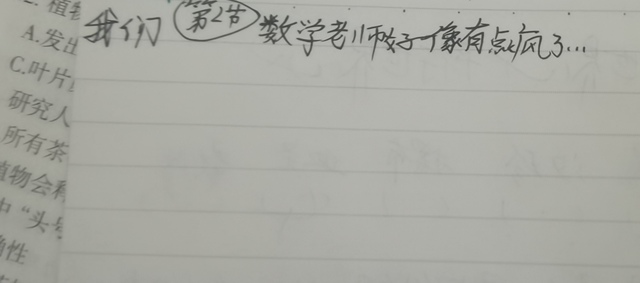 我们 第2节 数学老师好像有点疯了...
植
A.发出
C.叶片
研究人
所有茶
植物会
中“头
性